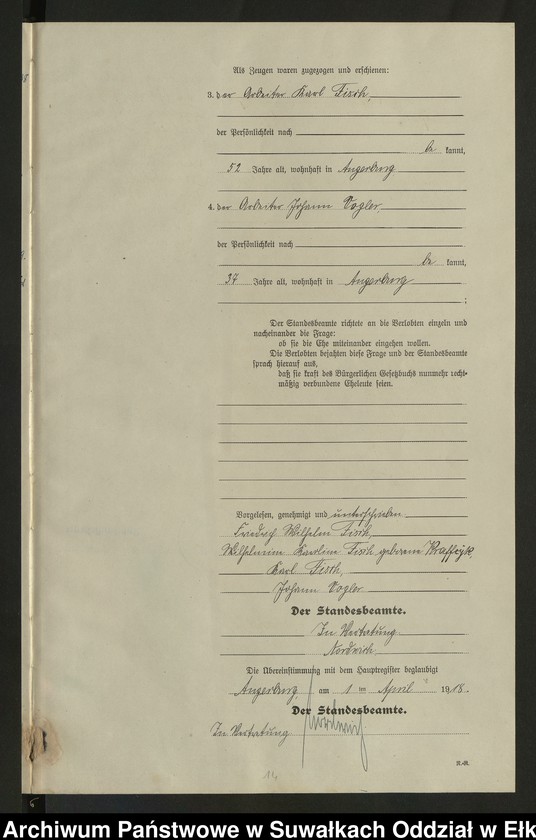 Als Zeugen waren zugezogen und erschienen:
3. der Arbeiter Karl Fisch,
der Persönlichkeit nach
be kannt,
52 Jahre alt, wohnhaft in Angerburg
4. der Arbeiter Johann Vogler,
der Persönlichkeit nach
be kannt,
37 Jahre alt, wohnhaft in Angerburg
;
Der Standesbeamte richtete an die Verlobten einzeln und
nacheinander die Frage:
ob sie die Ehe miteinander eingehen wollen.
Die Verlobten bejahten diese Frage und der Standesbeamte
sprach hierauf aus,
daß sie kraft des Bürgerlichen Gesetzbuchs nunmehr recht-
mäßig verbundene Eheleute seien.
Vorgelesen, genehmigt und unterschrieben
Friedrich Wilhelm Fisch,
Karoline Fisch geborene
Karl Fisch,
Johann Vogler
Der Standesbeamte.
In Vertretung
Nordwich
Die Übereinstimmung mit dem Hauptregister beglaubigt
Angerburg, am 1 ten April 1918.
Der Standesbeamte.
In Vertretung
N.-R.
Archiwum Państwowe w Suwałkach Oddział w Ełk